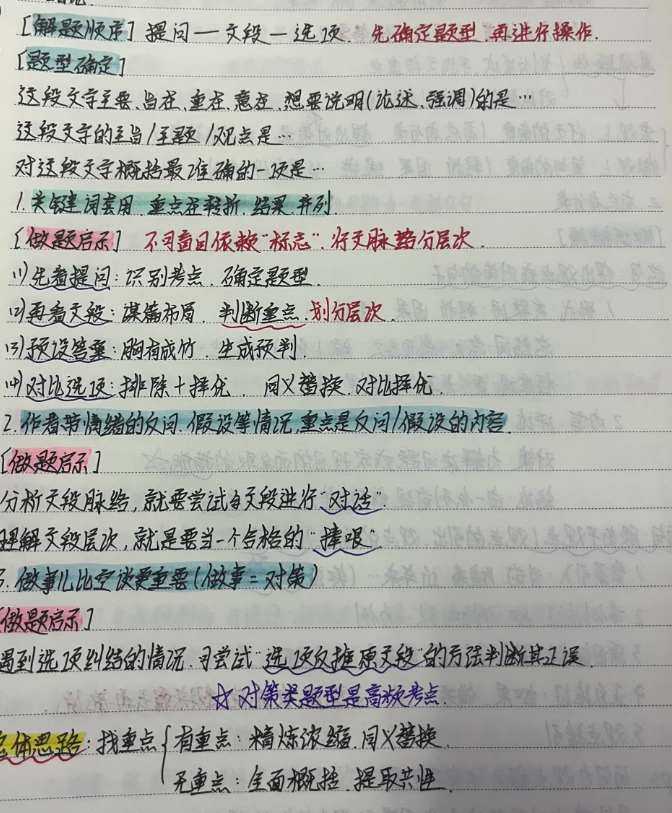 [解题顺序] 提问—文段—选项. 先确定题型,再进行操作.
[题型确定]
这段文字主要、旨在、重在、意在、想要说明(论述、强调)的是…
这段文字的主旨/主题/观点是…
对这段文字概括最准确的一项是…
1.关键词套用,重点在转折、结果、并列.
[做题启示] 不可盲目依赖“标志”.行文脉络分层次.
(1)先看提问:识别考点、确定题型.
(2)再看文段:谋篇布局、判断重点、划分层次.
(3)预设答案:胸有成竹、生成预判.
(4)对比选项:排除+择优 同义替换、对比择优.
2.作者带情绪的反问、假设等情况,重点是反问/假设的内容.
[做题启示]
分析文段脉络,就要尝试与文段进行“对话”.
理解文段层次,就是要当一个合格的“捧哏”.
3.做事儿比空谈更重要(做事=对策)
[做题启示]
遇到选项纠结的情况.可尝试“选项反推原文段”的方法判断其正误.
☆对策类题型是高频考点.
总体思路:找重点{有重点:精炼浓缩、同义替换.
无重点:全面概括、提取共性.